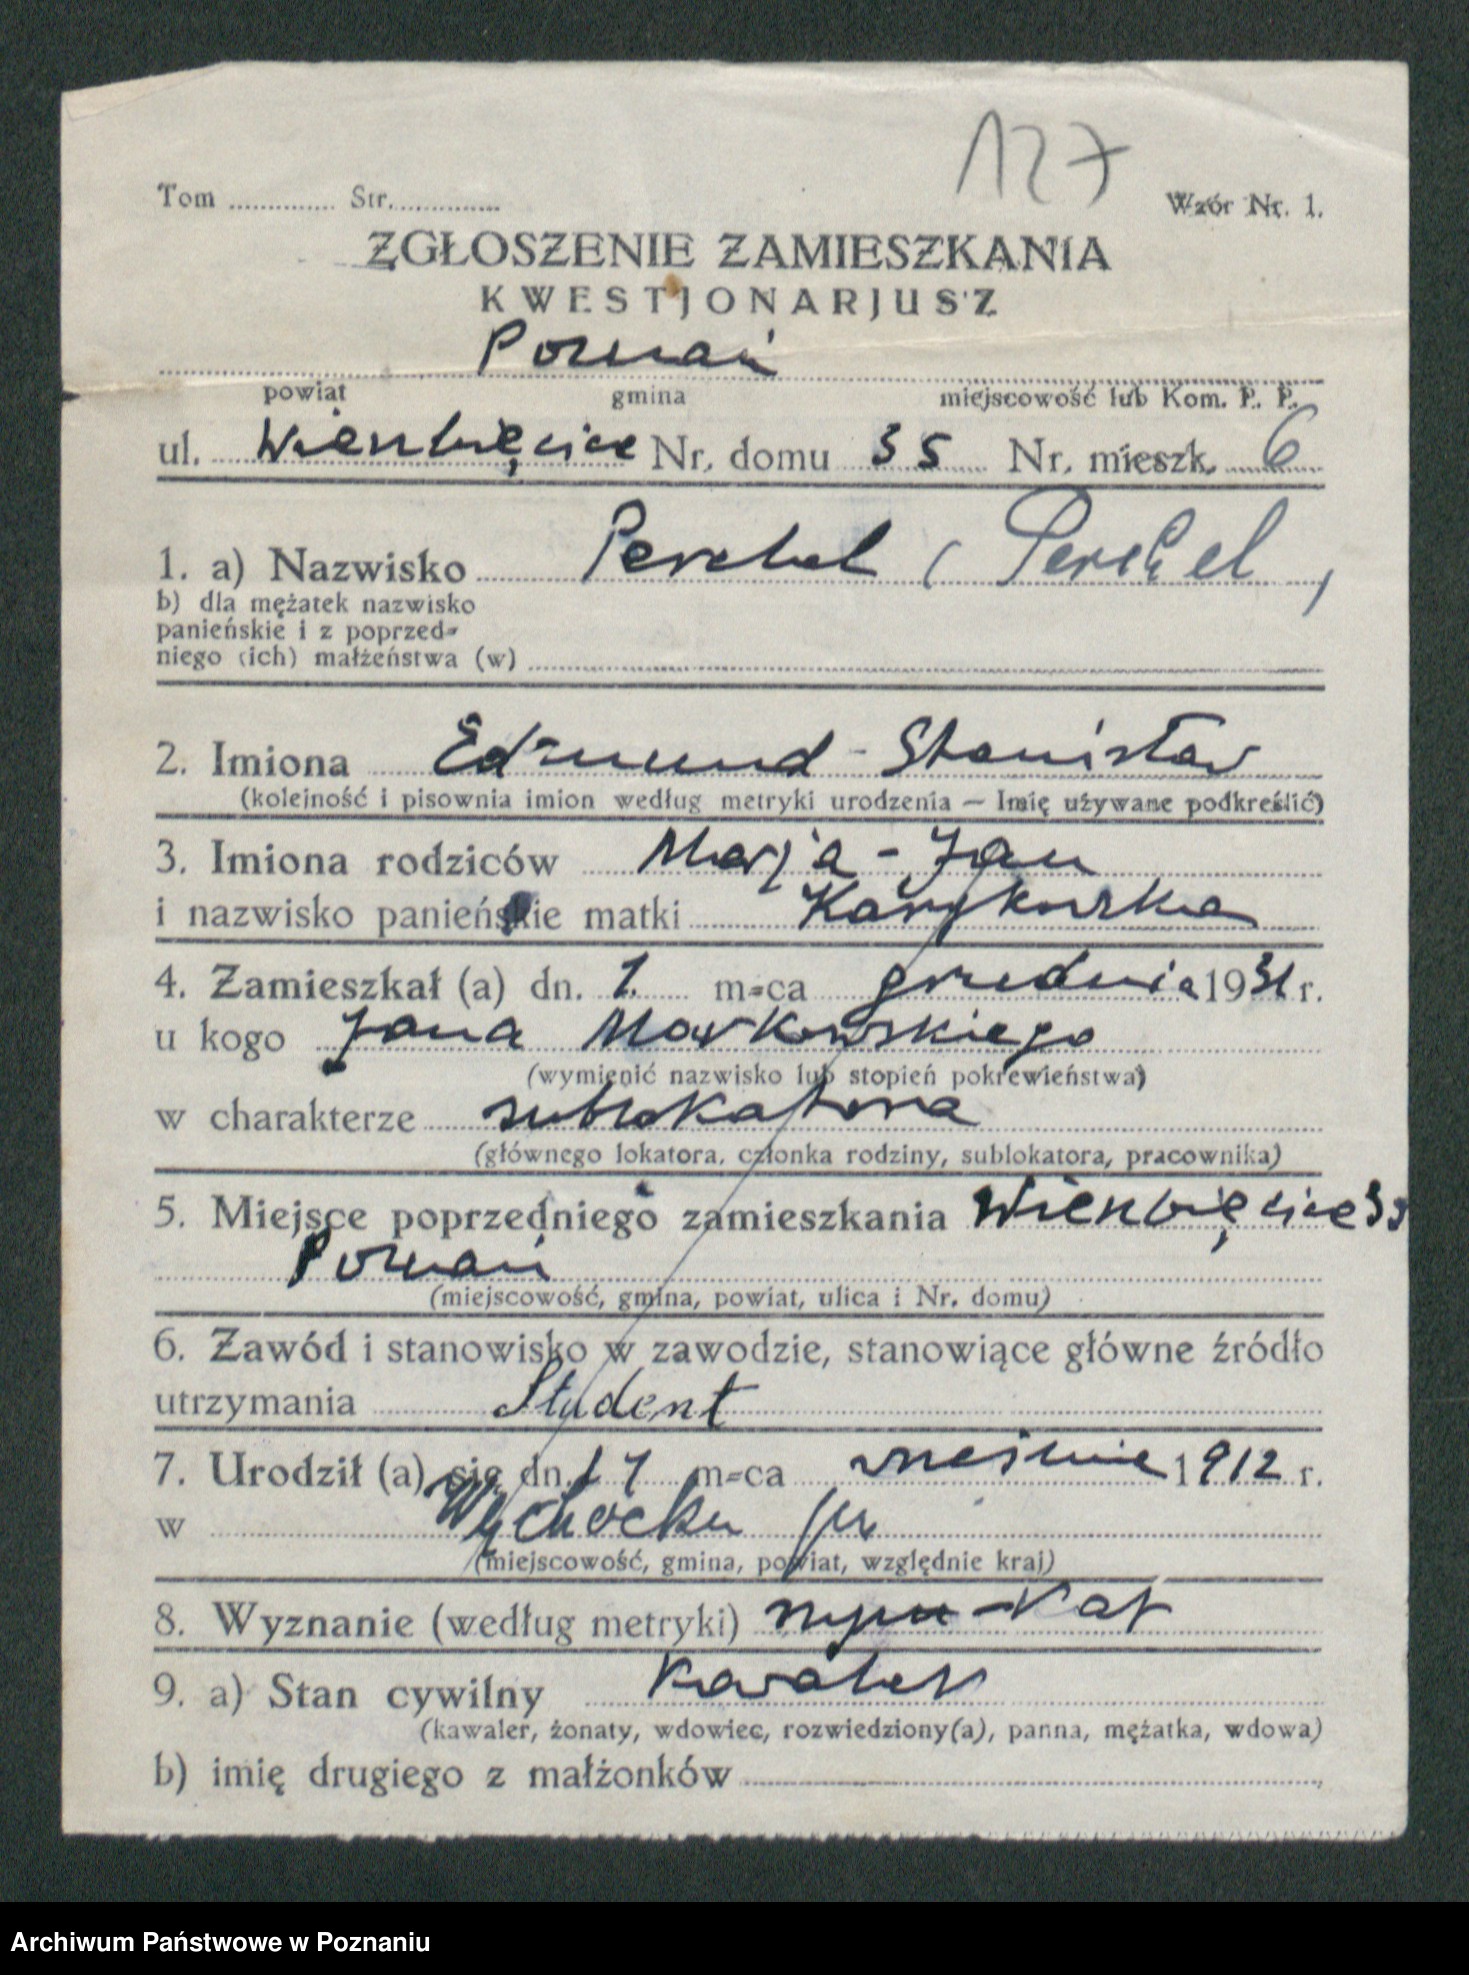 127
Tom .............. Str. ..............
Wzór Nr. 1.
ZGŁOSZENIE ZAMIESZKANIA
KWESTJONARJUSZ
Poznań
powiat gmina miejscowość lub Kom. P. P.
ul. Wierzbięcice Nr. domu 35 Nr. mieszk. 6
1. a) Nazwisko Perchel (Perchel)
b) dla mężatek nazwisko
panieńskie i z poprzed-
niego (ich) małżeństwa (w)
2. Imiona Edmund - Stanisław
(kolejność i pisownia imion według metryki urodzenia — Imię używane podkreślić)
3. Imiona rodziców Marja - Jan
i nazwisko panieńskie matki
4. Zamieszkał (a) dn. 1. m-ca grudnia 1931 r.
u kogo Jana Markowskiego
(wymienić nazwisko lub stopień pokrewieństwa)
w charakterze sublokatora
(głównego lokatora, członka rodziny, sublokatora, pracownika)
5. Miejsce poprzedniego zamieszkania Wierzbięcice
Poznań
(miejscowość, gmina, powiat, ulica i Nr. domu)
6. Zawód i stanowisko w zawodzie, stanowiące główne źródło
utrzymania Student
7. Urodził (a) się dn. 17 m-ca wrześnie 1912 r.
w Wąchocku
(miejscowość, gmina, powiat, względnie kraj)
8. Wyznanie (według metryki) rzym-kat
9. a) Stan cywilny Kawaler
(kawaler, żonaty, wdowiec, rozwiedziony(a), panna, mężatka, wdowa)
b) imię drugiego z małżonków
Archiwum Państwowe w Poznaniu